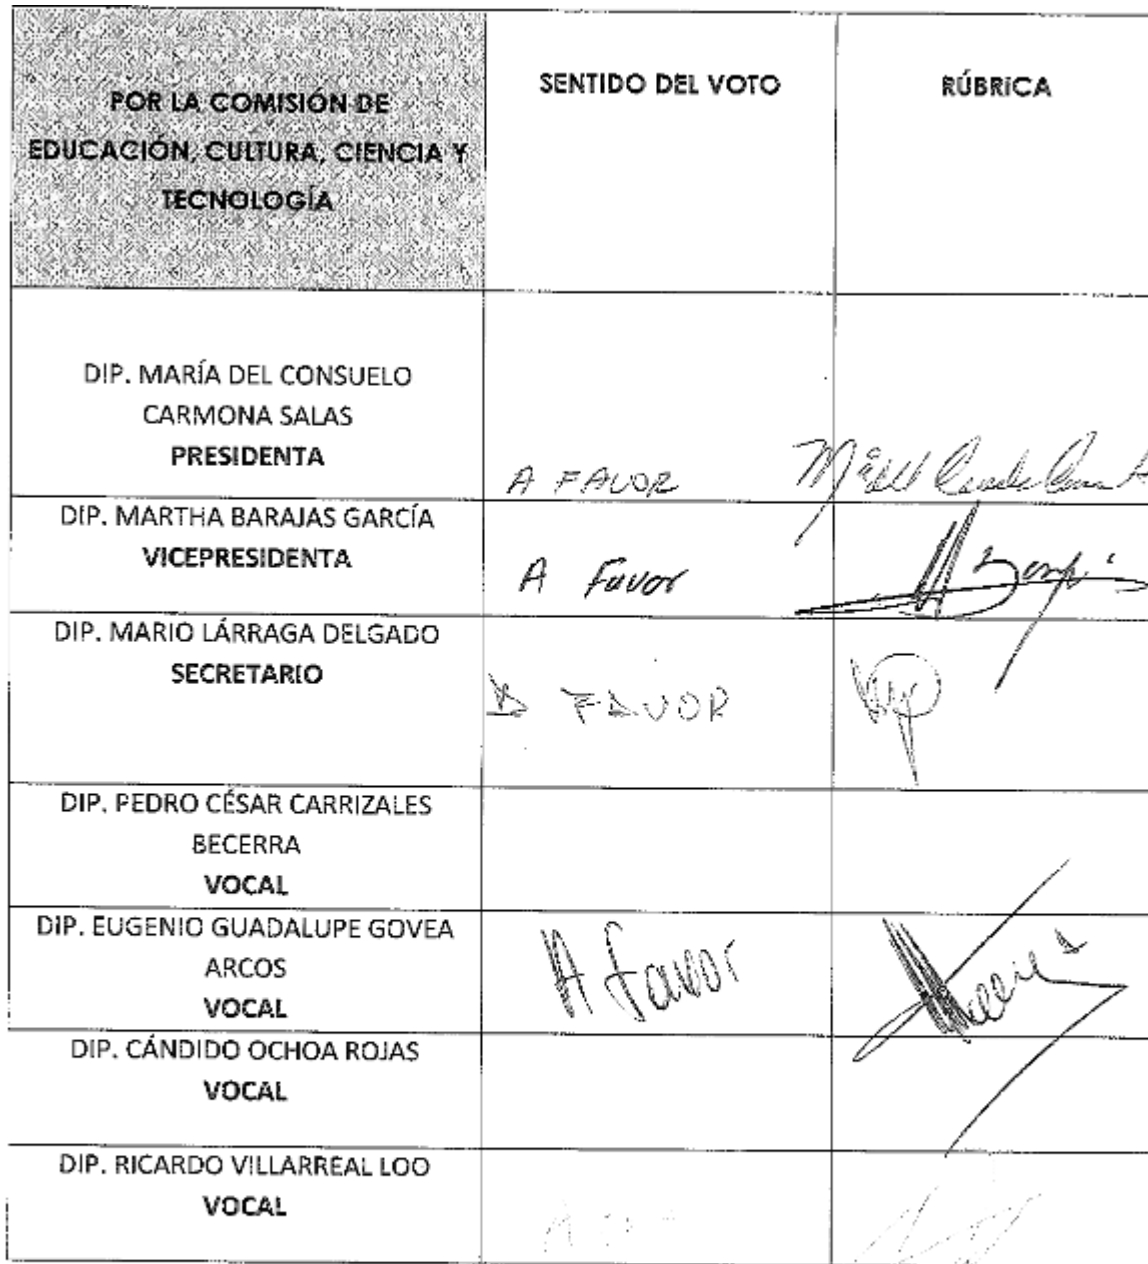 POR LA COMISIÓN DE
EDUCACIÓN, CULTURA, CIENCIA Y
TECNOLOGÍA
SENTIDO DEL VOTO
RÚBRICA
DIP. MARÍA DEL CONSUELO
CARMONA SALAS
PRESIDENTA
A FAVOR
DIP. MARTHA BARAJAS GARCÍA
VICEPRESIDENTA
A Favor
DIP. MARIO LÁRRAGA DELGADO
SECRETARIO
A FAVOR
DIP. PEDRO CÉSAR CARRIZALES
BECERRA
VOCAL
DIP. EUGENIO GUADALUPE GOVEA
ARCOS
VOCAL
A favor
DIP. CÁNDIDO OCHOA ROJAS
VOCAL
DIP. RICARDO VILLARREAL LOO
VOCAL
A